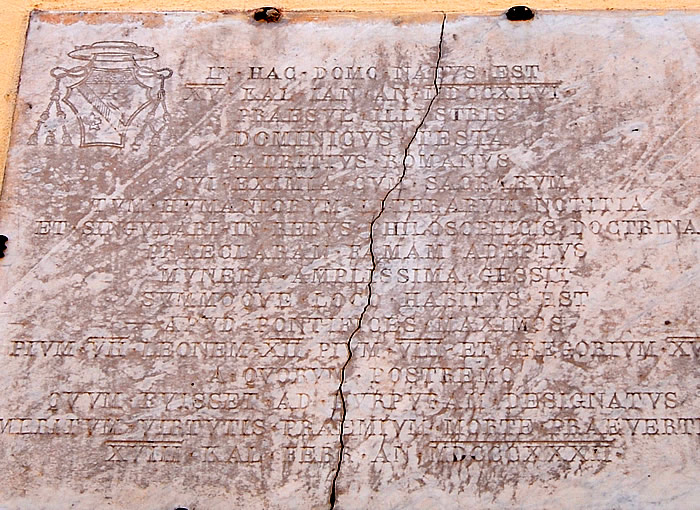 IN · HAC · DOMO · NATVS · EST
KAL · IAN · AN · MDCCXLVI
PRAESVL · ILLVSTRIS
DOMINICVS · TESTA
PATRITIVS · ROMANVS
QVI · EXIMIA · CVM · SACRARVM
TVM · HVMANIORVM · LITTERARVM · NOTITIA
ET · SINGVLARI · IN · REBVS · PHILOSOPHICIS · DOCTRINA
PRAECLARAM · FAMAM · ADEPTVS
MVNERA · AMPLISSIMA · GESSIT
SVMMOQVE · LOCO · HABITVS · EST
APVD · PONTIFICES · MAXIMOS
PIVM · VII · LEONEM · XII · PIVM · VIII · ET · GREGORIVM · XVI
A · QVORVM · POSTREMO
QVVM · FVISSET · AD · PVRPVRAM · DESIGNATVS
MELIEVM · VIRTVTIS · PRAEMIVM · MORTE · PRAEVERTI
XVIII · KAL · FEBR · AN · MDCCCXXXII